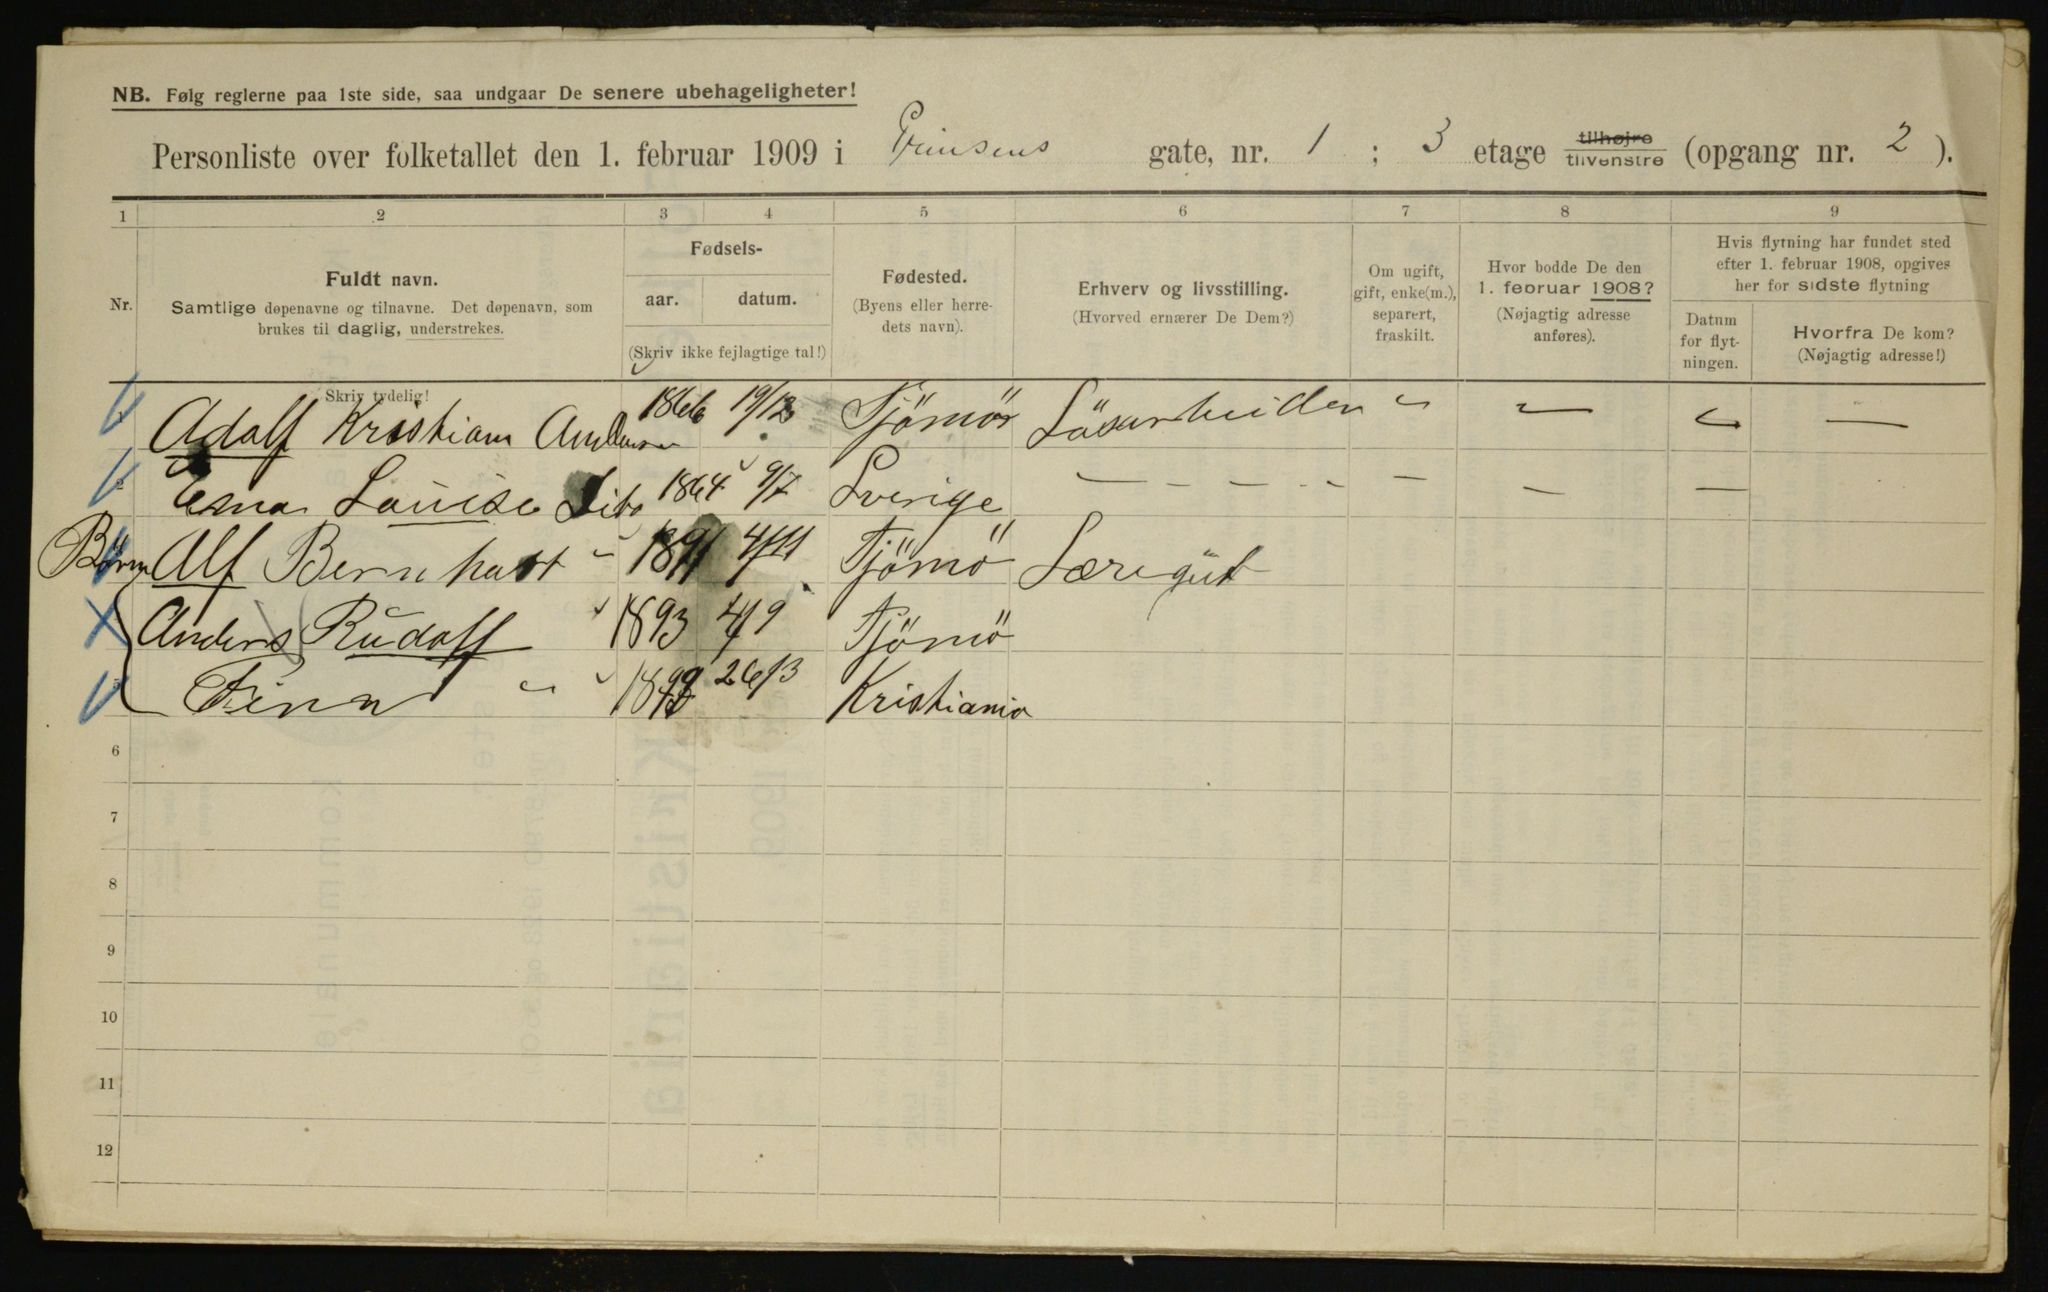 NB. Følg reglerne paa 1ste side, saa undgaar De senere ubehageligheter!
Personliste over folketallet den 1. februar 1909 i Prinsens gate, nr. 1 ; 3 etage tilhøjre tilvenstre (opgang nr. 2 ).
1 2 3 4 5 6 7 8 9
Nr.
Fuldt navn.
Samtlige døpenavne og tilnavne. Det døpenavn, som
brukes til daglig, understrekes.
Skriv tydelig!
Fødsels-
aar. datum.
(Skriv ikke fejlagtige tal!)
Fødested.
(Byens eller herre-
dets navn).
Erhverv og livsstilling.
(Hvorved ernærer De Dem?)
Om ugift,
gift, enke(m.),
separert,
fraskilt.
Hvor bodde De den
1. februar 1908?
(Nøjagtig adresse
anføres).
Hvis flytning har fundet sted
efter 1. februar 1908, opgives
her for sidste flytning
Datum
for flyt-
ningen.
Hvorfra De kom?
(Nøjagtig adresse!)
Adolf Kristian Andersen 1866 19/12 Tjömö Lösarbeider " — — —
2 Lovise Dito 1864 9/7 Sverige — - - - - - — —
Börn Alf Bernhart " 1891 4/11 Tjömö Læregut
Anders Rudolf " 1893 4/9 Tjömö
5 Finn " " 1899 26/3 Kristiania
6
7
8
9
10
11
12